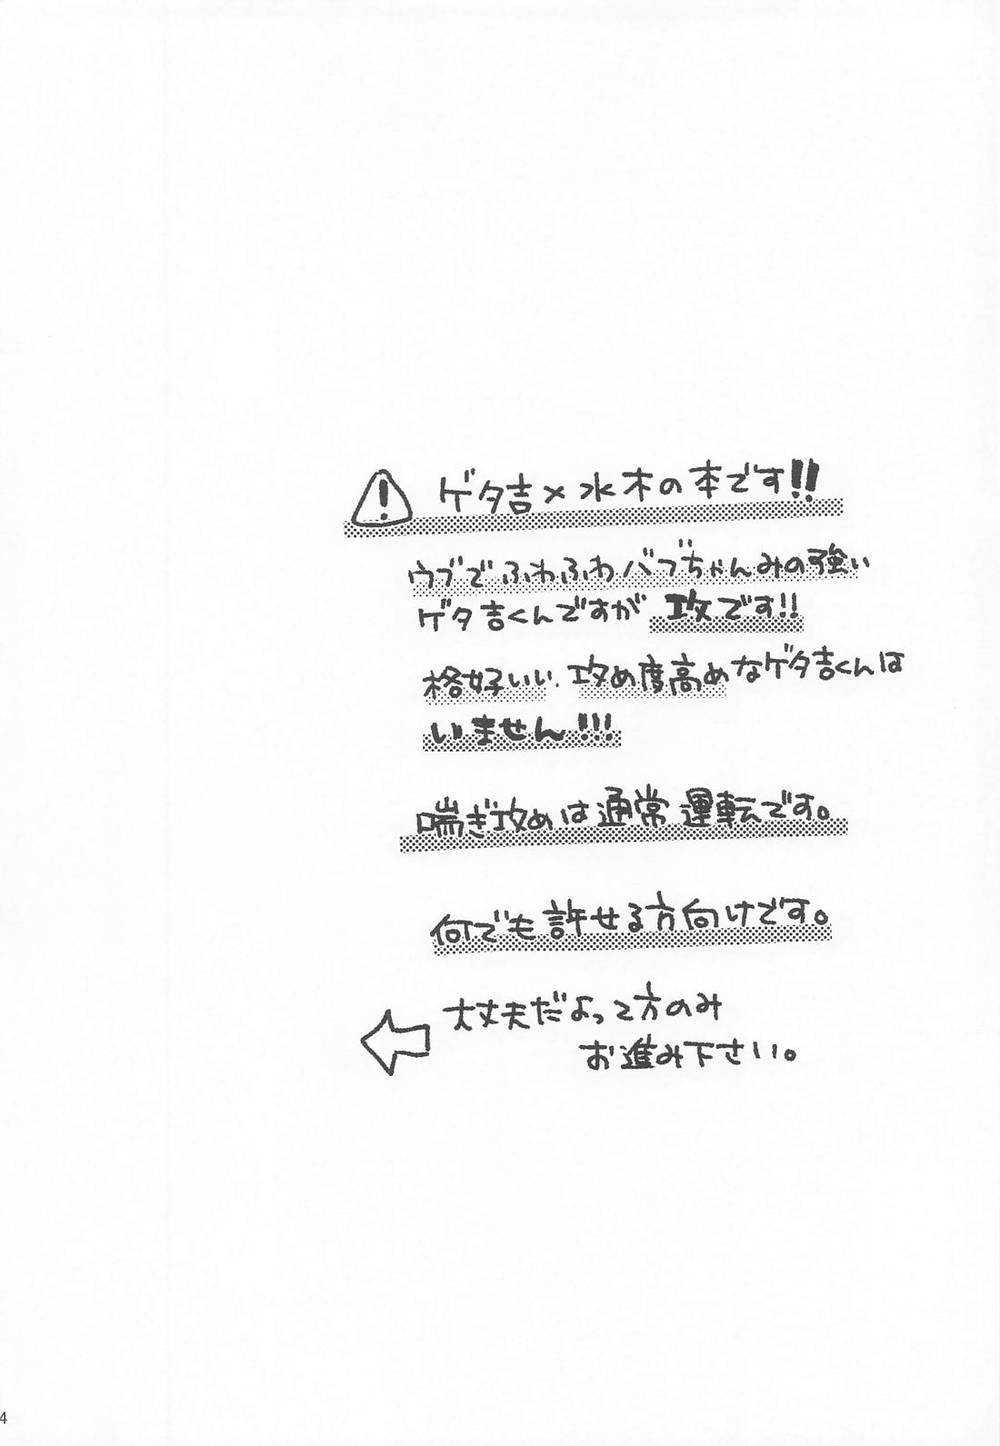 ゲタ吉×水木の本です!!
ウブでふわふわバブちゃんみの強い
ゲタ吉くんですが 攻です!!
格好いい、攻め度高めなゲタ吉くんは
いません!!!
喘ぎ攻めは通常運転です。
何でも許せる方向けです。
大丈夫だよって方のみ
お進み下さい。
4